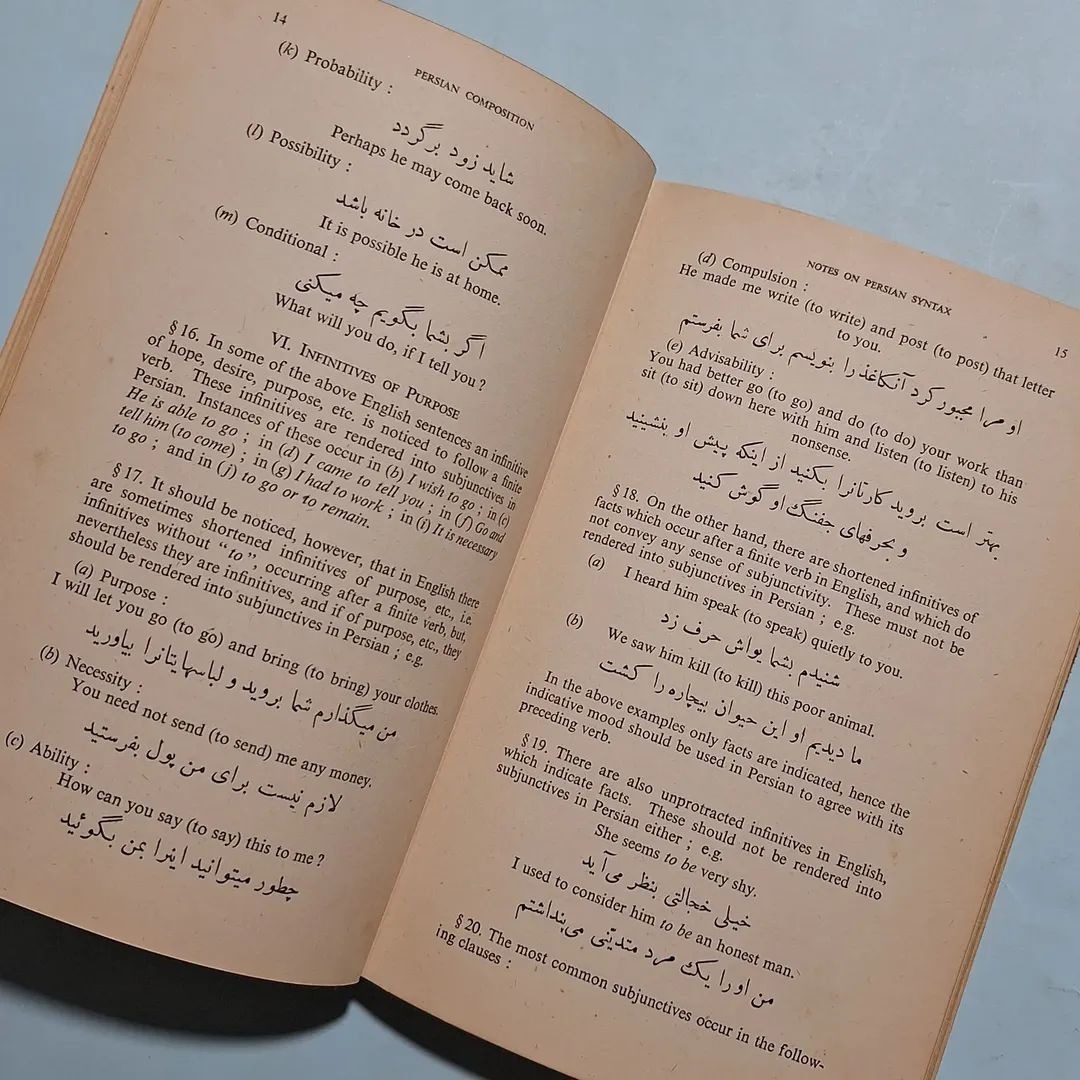 14
PERSIAN COMPOSITION
(k) Probability :
شاید زود برگردد
Perhaps he may come back soon.
(l) Possibility :
ممکن است در خانه باشد
It is possible he is at home.
(m) Conditional :
اگر بشما بگویم چه میکنی
What will you do, if I tell you ?
VI. INFINITIVES OF PURPOSE
§ 16. In some of the above English sentences an infinitive
of hope, desire, purpose, etc. is noticed to follow a finite
verb. These infinitives are rendered into subjunctives in
Persian. Instances of these occur in (b) I wish to go ; in (c)
He is able to go ; in (d) I came to tell you ; in (f) Go and
tell him (to come) ; in (g) I had to work ; in (i) It is necessary
to go ; and in (j) to go or to remain.
§ 17. It should be noticed, however, that in English there
are sometimes shortened infinitives of purpose, etc., i.e.
infinitives without "to", occurring after a finite verb, but,
nevertheless they are infinitives, and if of purpose, etc., they
should be rendered into subjunctives in Persian ; e.g.
(a) Purpose :
I will let you go (to go) and bring (to bring) your clothes.
من میگذارم شما بروید و لباسهایتانرا بیاورید
(b) Necessity :
You need not send (to send) me any money.
لازم نیست برای من پول بفرستید
(c) Ability :
How can you say (to say) this to me ?
چطور میتوانید اینرا بمن بگوئید
NOTES ON PERSIAN SYNTAX
15
(d) Compulsion :
He made me write (to write) and post (to post) that letter
to you.
او مرا مجبور کرد آنکاغذ را بنویسم برای شما بفرستم
(e) Advisability :
You had better go (to go) and do (to do) your work than
sit (to sit) down here with him and listen (to listen) to his
nonsense.
بهتر است بروید کارتانرا بکنید از اینکه پیش او بنشینید
و بحرفهای جفنگ او گوش کنید
§ 18. On the other hand, there are shortened infinitives of
facts which occur after a finite verb in English, and which do
not convey any sense of subjunctivity. These must not be
rendered into subjunctives in Persian ; e.g.
(a) I heard him speak (to speak) quietly to you.
شنیدم بشما یواش حرف زد
(b) We saw him kill (to kill) this poor animal.
ما دیدیم او این حیوان بیچاره را کشت
In the above examples only facts are indicated, hence the
indicative mood should be used in Persian to agree with its
preceding verb.
§ 19. There are also unprotracted infinitives in English,
which indicate facts. These should not be rendered into
subjunctives in Persian either ; e.g.
She seems to be very shy.
خیلی خجالتی بنظر می‌آید
I used to consider him to be an honest man.
من او را یک مرد متدیّنی می‌پنداشتم
§ 20. The most common subjunctives occur in the follow-
ing clauses :